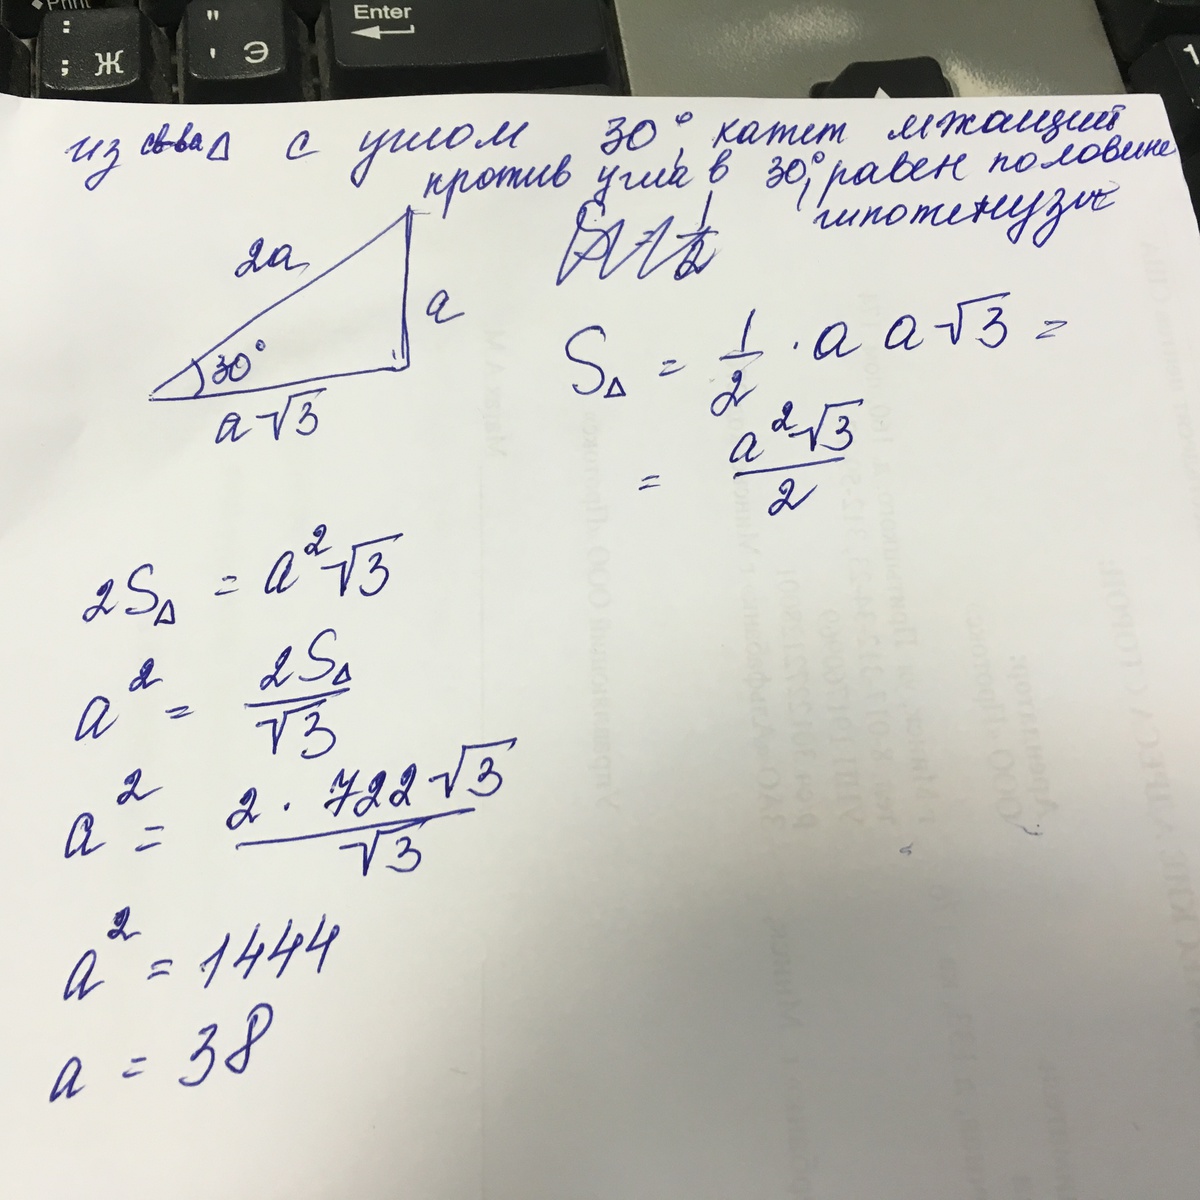 Print
: ; Ж
" ' Э
Enter
1
из св-ва Δ с углом 30°, катет лжащий
против угла в 30°, равен половине
гипотенузы
2a
a
30°
a√3
S_Δ = 1/2 · a a√3 =
= a²√3/2
2S_Δ = a²√3
a² = 2S_Δ/√3
a² = 2 · 722√3/√3
a² = 1444
a = 38